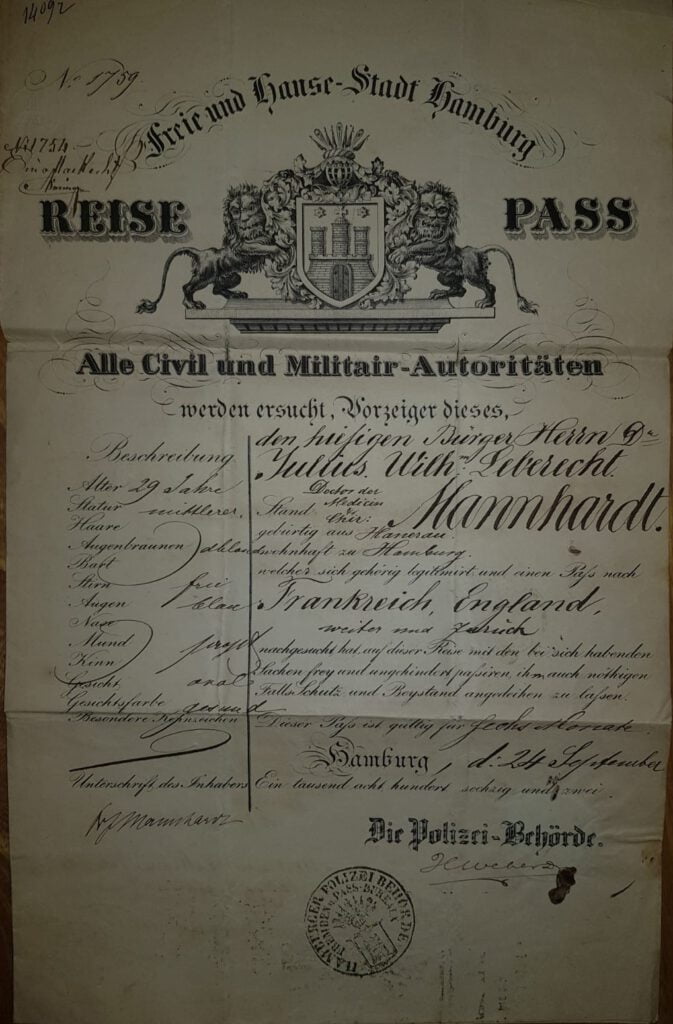 14092
No 1759.
No 1754
Freie und Hanse-Stadt Hamburg
REISE PASS
Alle Civil und Militair-Autoritäten
werden ersucht, Vorzeiger dieses,
den hiesigen Bürger Herrn Dr
Julius Wilhm Leberecht
Mannhardt.
Stand Doctor der Medicin & Chir:
gebürtig aus Hanerau.
wohnhaft zu Hamburg.
welcher sich gehörig legitimirt und einen Pass nach
Frankreich, England,
weiter und zurück
nachgesucht hat, auf dieser Reise mit den bei sich habenden
Sachen frey und ungehindert passiren, ihm auch nöthigen
Falls Schutz und Beystand angedeihen zu lassen.
Dieser Pass ist gültig für sechs Monate
Hamburg, d. 24 September
Ein tausend acht hundert sechzig und zwei
Die Polizei-Behörde.
Beschreibung
Alter 29 Jahre
Statur mittlerer
Haare
Augenbraunen dblond
Bart
Stirn frei
Augen blau
Nase
Mund
Kinn
Gesicht oval
Gesichtsfarbe gesund
Besondere Kennzeichen
Unterschrift des Inhabers
Mannhardt
HAMBURGER POLIZEI BEHÖRDE
FREMDEN & PASS-BUREAU